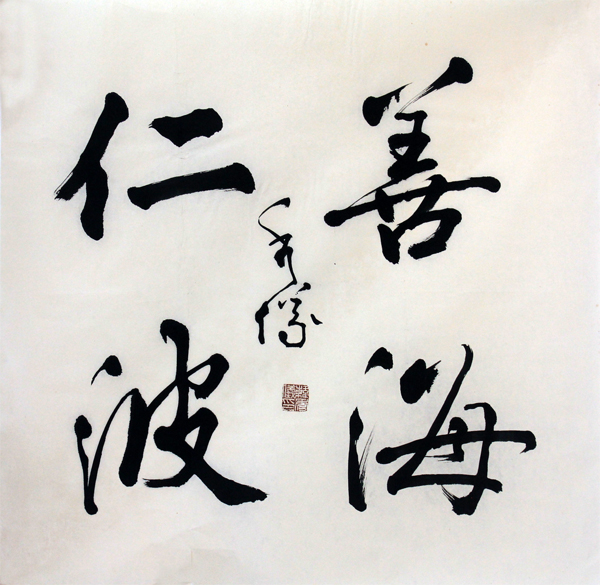 善海
仁波